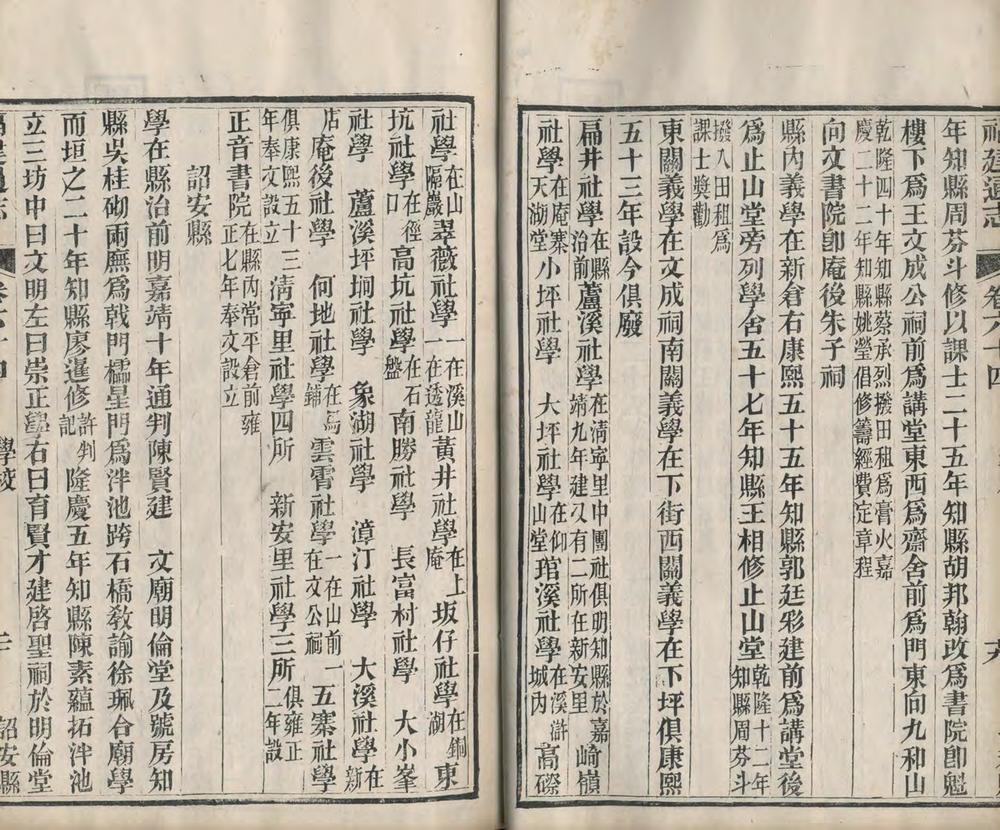 福建通志 卷六十四
年知縣周芬斗修以課士二十五年知縣胡邦翰改爲書院卽魁
樓下爲王文成公祠前爲講堂東西爲齋舍前爲門東向九和山
乾隆四十年知縣蔡承烈撥田租爲膏火嘉
慶二十二年知縣姚瑩倡修籌經費定章程
向文書院卽庵後朱子祠
縣內義學在新倉右康熙五十五年知縣郭廷彩建前爲講堂後
爲止山堂旁列學舍五十七年知縣王相修止山堂乾隆十二年
知縣周芬斗
撥入田租爲
課士奬勸
東關義學在文成祠南關義學在下街西關義學在下坪俱康熙
五十三年設今俱廢
扁井社學在縣治前蘆溪社學在清寧里中團社俱明知縣於嘉
靖九年建又有二所在新安里崎嶺
社學在庵寨天湖堂小坪社學 大坪社學在仰山堂琯溪社學在溪滸城內高磜
社學在山隔巖翠薇社學一在溪山一在透龍黃井社學在上庵坂仔社學在銅湖東
坑社學在徑口高坑社學在石盤南勝社學 長富村社學 大小峯
社學 蘆溪坪垌社學 象湖社學 漳汀社學 大溪社學在新
店庵後社學 何地社學在馬鋪雲霄社學一在山前一在文公祠五寨社學
俱康熙五十三
年奉文設立清寧里社學四所 新安里社學三所俱雍正
二年設
正音書院在縣內常平倉前雍
正七年奉文設立
詔安縣
學在縣治前明嘉靖十年通判陳賢建 文廟明倫堂及號房知
縣吳桂砌兩廡爲戟門櫺星門爲泮池跨石橋教諭徐珮台廟學
而垣之二十年知縣廖暹修許判記隆慶五年知縣陳素蘊拓泮池
立三坊中曰文明左曰崇正學右曰育賢才建啓聖祠於明倫堂
學校
詔安縣